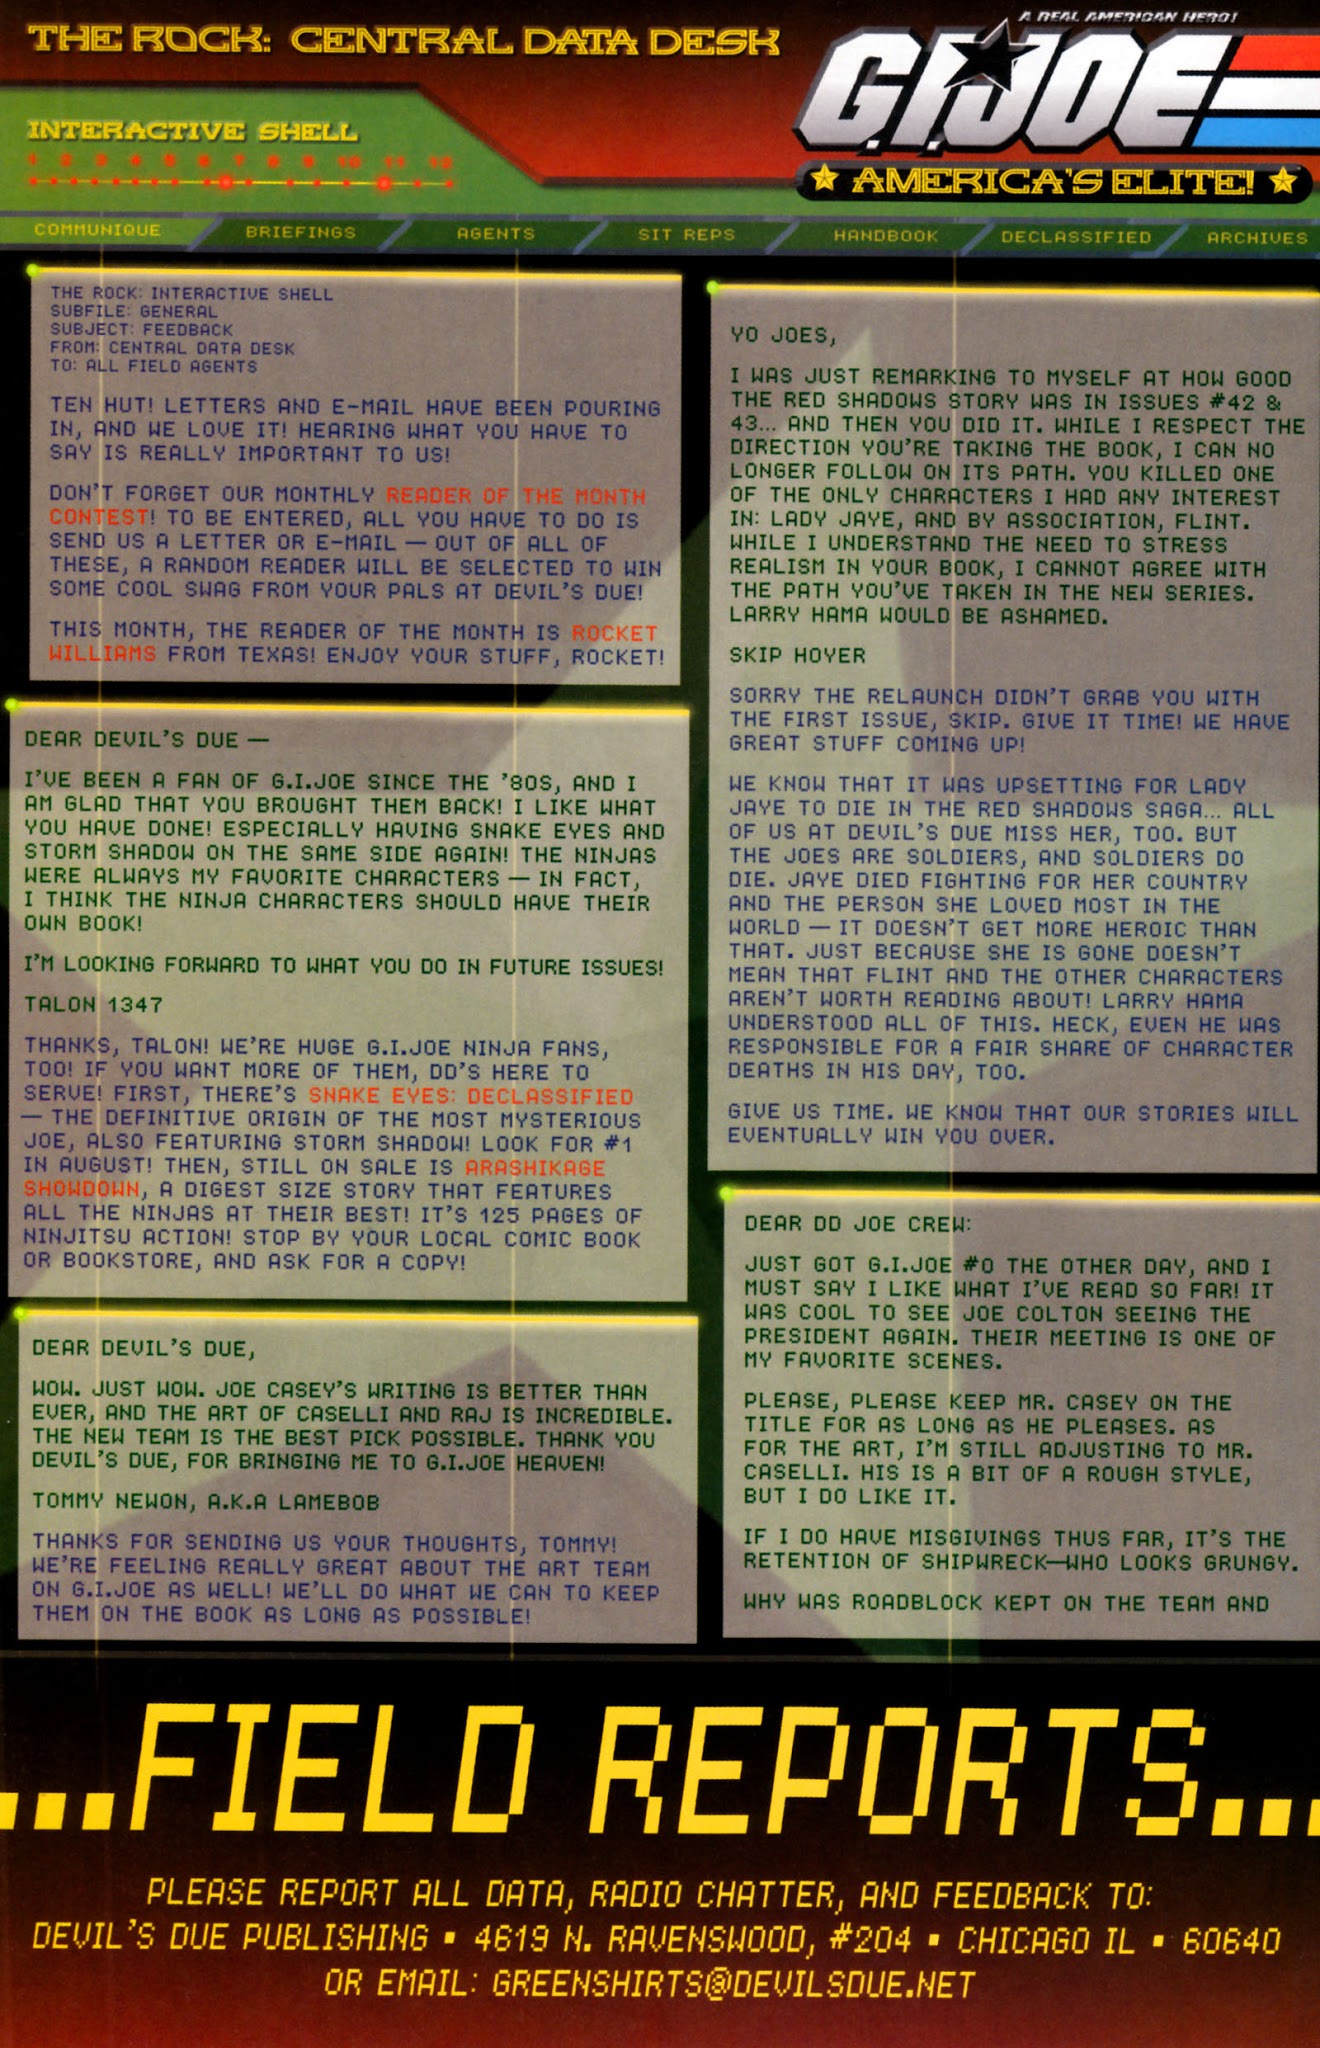 THE ROCK: CENTRAL DATA DESK
A REAL AMERICAN HERO!
G.I. JOE
AMERICA'S ELITE!
INTERACTIVE SHELL
1 2 3 4 5 6 7 8 9 10 11 12
COMMUNIQUE BRIEFINGS AGENTS SIT REPS HANDBOOK DECLASSIFIED ARCHIVES
THE ROCK: INTERACTIVE SHELL
SUBFILE: GENERAL
SUBJECT: FEEDBACK
FROM: CENTRAL DATA DESK
TO: ALL FIELD AGENTS
TEN HUT! LETTERS AND E-MAIL HAVE BEEN POURING
IN, AND WE LOVE IT! HEARING WHAT YOU HAVE TO
SAY IS REALLY IMPORTANT TO US!
DON'T FORGET OUR MONTHLY READER OF THE MONTH
CONTEST! TO BE ENTERED, ALL YOU HAVE TO DO IS
SEND US A LETTER OR E-MAIL — OUT OF ALL OF
THESE, A RANDOM READER WILL BE SELECTED TO WIN
SOME COOL SWAG FROM YOUR PALS AT DEVIL'S DUE!
THIS MONTH, THE READER OF THE MONTH IS ROCKET
WILLIAMS FROM TEXAS! ENJOY YOUR STUFF, ROCKET!
DEAR DEVIL'S DUE —
I'VE BEEN A FAN OF G.I.JOE SINCE THE '80S, AND I
AM GLAD THAT YOU BROUGHT THEM BACK! I LIKE WHAT
YOU HAVE DONE! ESPECIALLY HAVING SNAKE EYES AND
STORM SHADOW ON THE SAME SIDE AGAIN! THE NINJAS
WERE ALWAYS MY FAVORITE CHARACTERS — IN FACT,
I THINK THE NINJA CHARACTERS SHOULD HAVE THEIR
OWN BOOK!
I'M LOOKING FORWARD TO WHAT YOU DO IN FUTURE ISSUES!
TALON 1347
THANKS, TALON! WE'RE HUGE G.I.JOE NINJA FANS,
TOO! IF YOU WANT MORE OF THEM, DD'S HERE TO
SERVE! FIRST, THERE'S SNAKE EYES: DECLASSIFIED
— THE DEFINITIVE ORIGIN OF THE MOST MYSTERIOUS
JOE, ALSO FEATURING STORM SHADOW! LOOK FOR #1
IN AUGUST! THEN, STILL ON SALE IS ARASHIKAGE
SHOWDOWN, A DIGEST SIZE STORY THAT FEATURES
ALL THE NINJAS AT THEIR BEST! IT'S 125 PAGES OF
NINJITSU ACTION! STOP BY YOUR LOCAL COMIC BOOK
OR BOOKSTORE, AND ASK FOR A COPY!
DEAR DEVIL'S DUE,
WOW. JUST WOW. JOE CASEY'S WRITING IS BETTER THAN
EVER, AND THE ART OF CASELLI AND RAJ IS INCREDIBLE.
THE NEW TEAM IS THE BEST PICK POSSIBLE. THANK YOU
DEVIL'S DUE, FOR BRINGING ME TO G.I.JOE HEAVEN!
TOMMY NEWON, A.K.A LAMEBOB
THANKS FOR SENDING US YOUR THOUGHTS, TOMMY!
WE'RE FEELING REALLY GREAT ABOUT THE ART TEAM
ON G.I.JOE AS WELL! WE'LL DO WHAT WE CAN TO KEEP
THEM ON THE BOOK AS LONG AS POSSIBLE!
YO JOES,
I WAS JUST REMARKING TO MYSELF AT HOW GOOD
THE RED SHADOWS STORY WAS IN ISSUES #42 &
43... AND THEN YOU DID IT. WHILE I RESPECT THE
DIRECTION YOU'RE TAKING THE BOOK, I CAN NO
LONGER FOLLOW ON ITS PATH. YOU KILLED ONE
OF THE ONLY CHARACTERS I HAD ANY INTEREST
IN: LADY JAYE, AND BY ASSOCIATION, FLINT.
WHILE I UNDERSTAND THE NEED TO STRESS
REALISM IN YOUR BOOK, I CANNOT AGREE WITH
THE PATH YOU'VE TAKEN IN THE NEW SERIES.
LARRY HAMA WOULD BE ASHAMED.
SKIP HOYER
SORRY THE RELAUNCH DIDN'T GRAB YOU WITH
THE FIRST ISSUE, SKIP. GIVE IT TIME! WE HAVE
GREAT STUFF COMING UP!
WE KNOW THAT IT WAS UPSETTING FOR LADY
JAYE TO DIE IN THE RED SHADOWS SAGA... ALL
OF US AT DEVIL'S DUE MISS HER, TOO. BUT
THE JOES ARE SOLDIERS, AND SOLDIERS DO
DIE. JAYE DIED FIGHTING FOR HER COUNTRY
AND THE PERSON SHE LOVED MOST IN THE
WORLD — IT DOESN'T GET MORE HEROIC THAN
THAT. JUST BECAUSE SHE IS GONE DOESN'T
MEAN THAT FLINT AND THE OTHER CHARACTERS
AREN'T WORTH READING ABOUT! LARRY HAMA
UNDERSTOOD ALL OF THIS. HECK, EVEN HE WAS
RESPONSIBLE FOR A FAIR SHARE OF CHARACTER
DEATHS IN HIS DAY, TOO.
GIVE US TIME. WE KNOW THAT OUR STORIES WILL
EVENTUALLY WIN YOU OVER.
DEAR DD JOE CREW:
JUST GOT G.I.JOE #0 THE OTHER DAY, AND I
MUST SAY I LIKE WHAT I'VE READ SO FAR! IT
WAS COOL TO SEE JOE COLTON SEEING THE
PRESIDENT AGAIN. THEIR MEETING IS ONE OF
MY FAVORITE SCENES.
PLEASE, PLEASE KEEP MR. CASEY ON THE
TITLE FOR AS LONG AS HE PLEASES. AS
FOR THE ART, I'M STILL ADJUSTING TO MR.
CASELLI. HIS IS A BIT OF A ROUGH STYLE,
BUT I DO LIKE IT.
IF I DO HAVE MISGIVINGS THUS FAR, IT'S THE
RETENTION OF SHIPWRECK—WHO LOOKS GRUNGY.
WHY WAS ROADBLOCK KEPT ON THE TEAM AND
...FIELD REPORTS...
PLEASE REPORT ALL DATA, RADIO CHATTER, AND FEEDBACK TO:
DEVIL'S DUE PUBLISHING ▪ 4619 N. RAVENSWOOD, #204 ▪ CHICAGO IL ▪ 60640
OR EMAIL: GREENSHIRTS@DEVILSDUE.NET